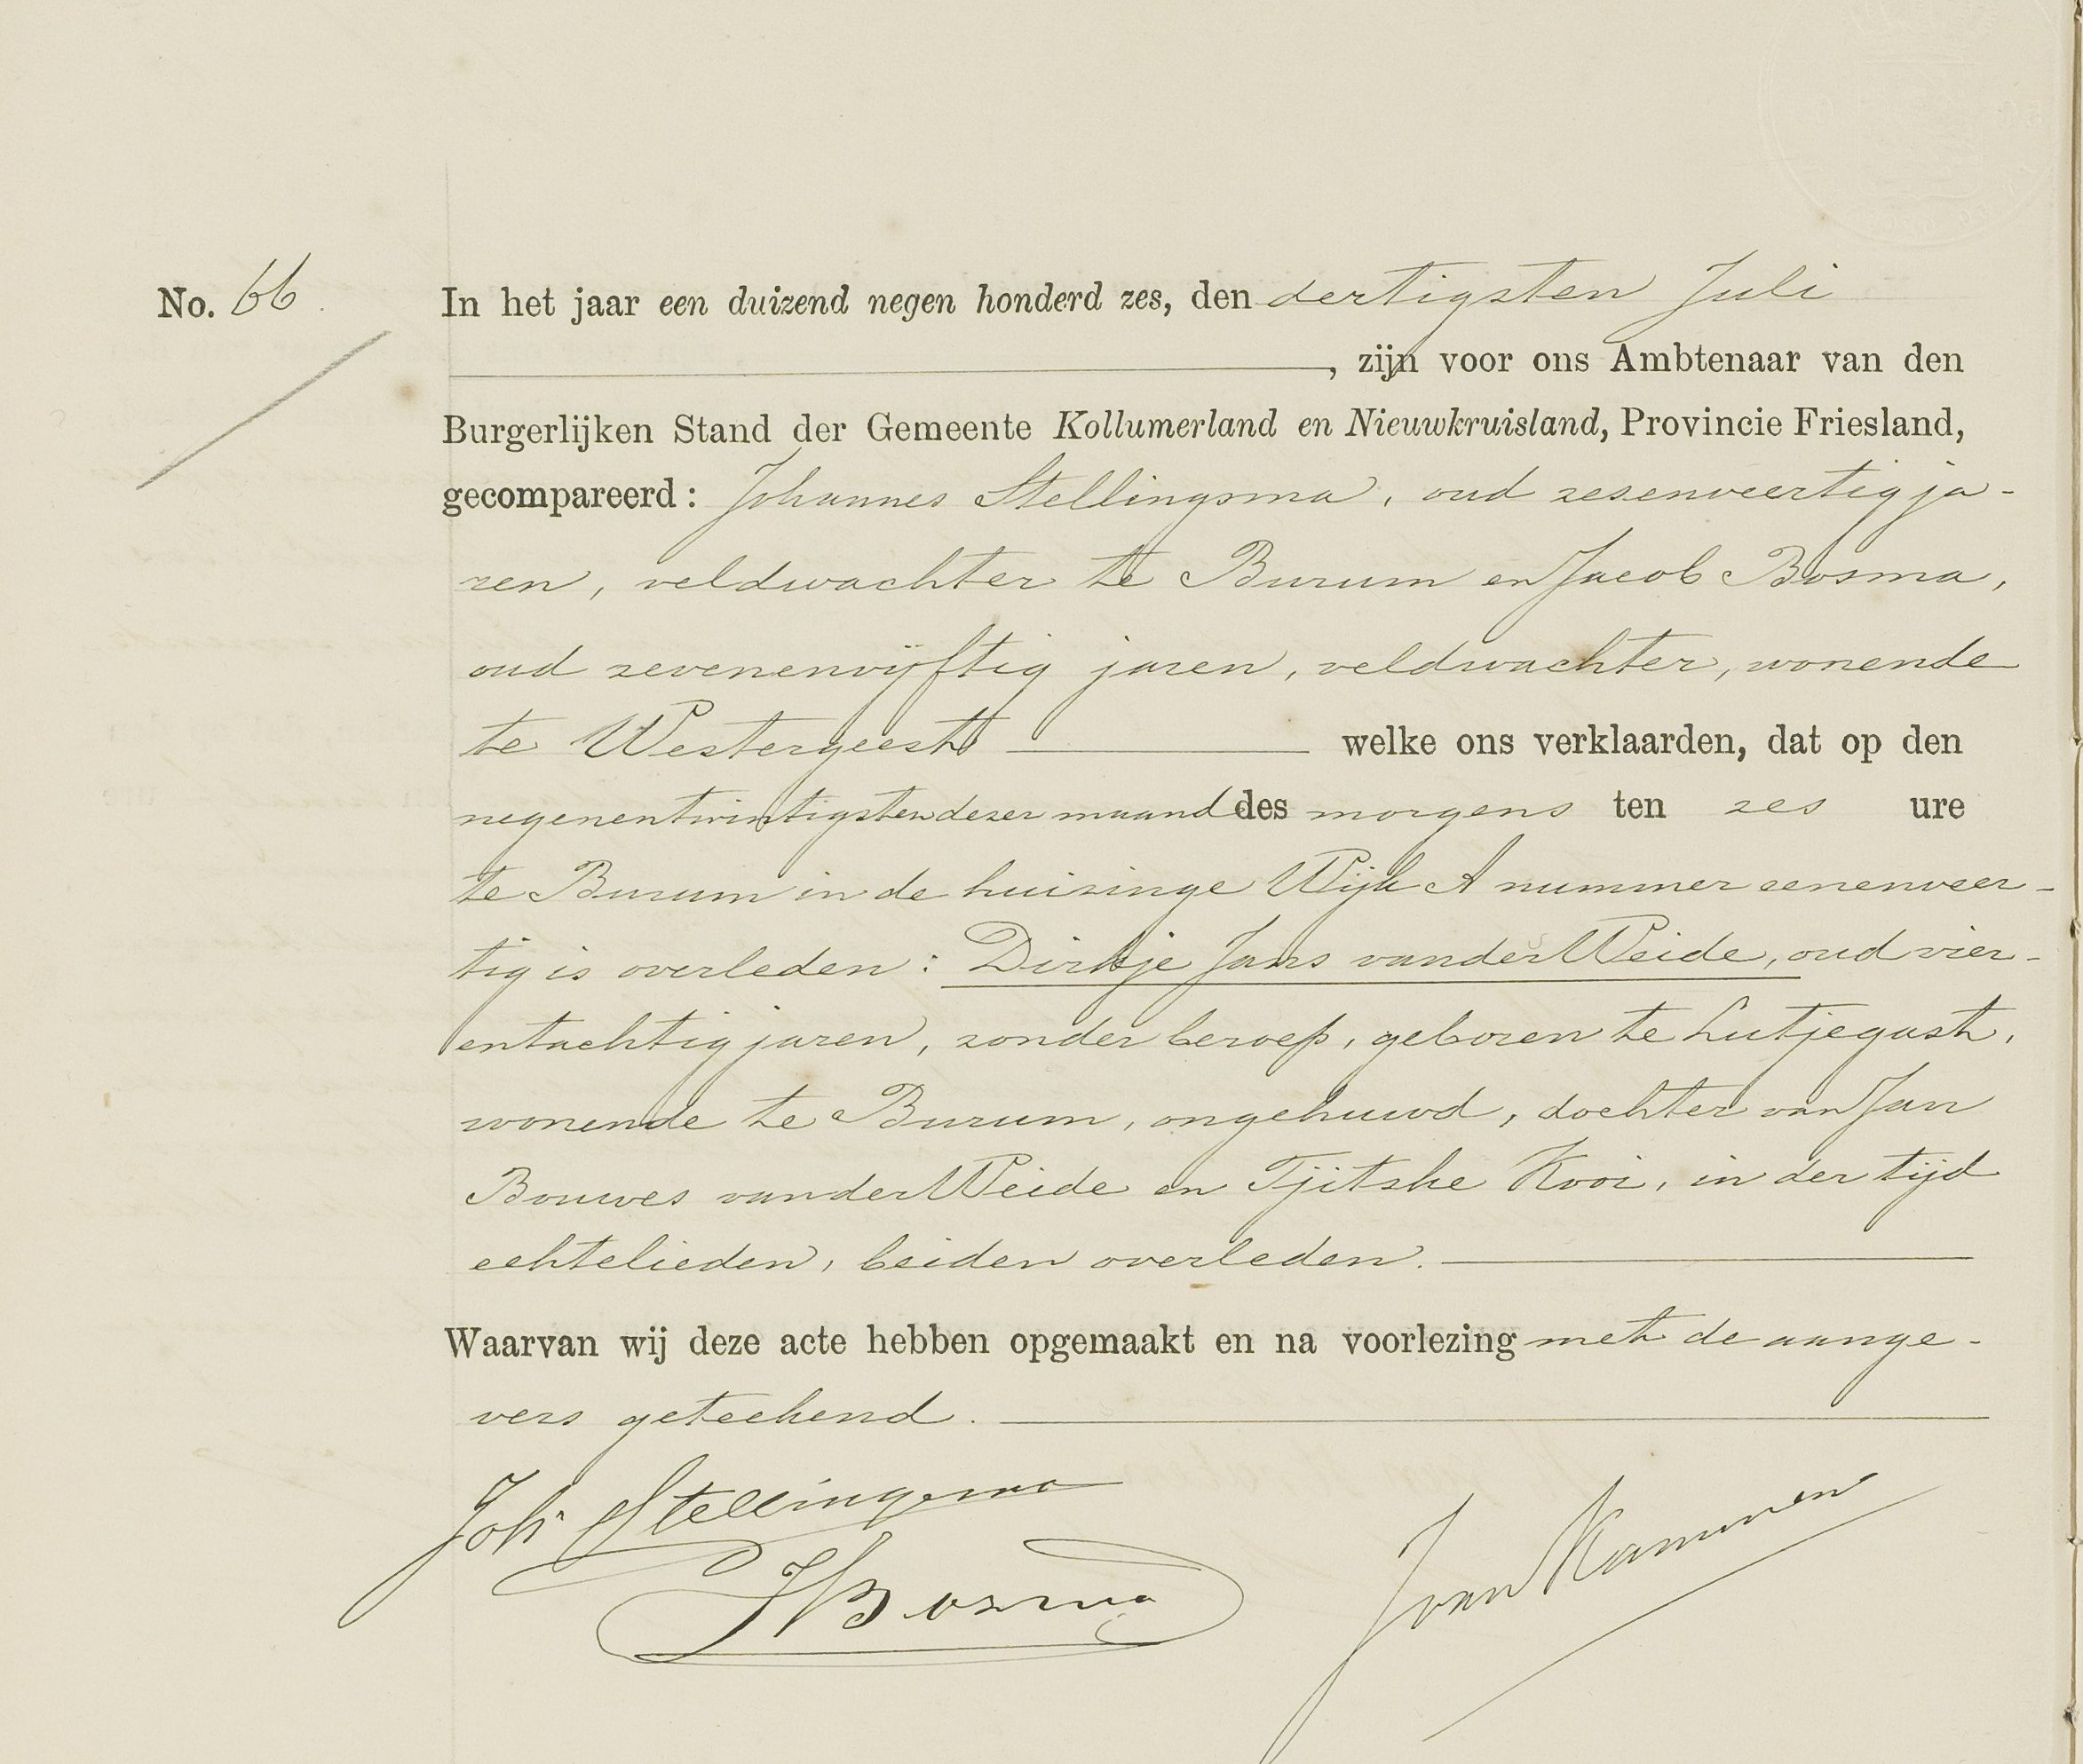 No. 66. In het jaar een duizend negen honderd zes, den dertigsten Juli
, zijn voor ons Ambtenaar van den
Burgerlijken Stand der Gemeente Kollumerland en Nieuwkruisland, Provincie Friesland,
gecompareerd: Johannes Stellingsma, oud zesenveertig ja-
ren, veldwachter te Burum en Jacob Bosma,
oud zevenenvijftig jaren, veldwachter, wonende
te Westergeest welke ons verklaarden, dat op den
negenentwintigsten dezer maand des morgens ten zes ure
te Burum in de huizinge Wijk A nummer eenenveer-
tig is overleden: Dirkje Jans van der Weide, oud vier-
entachtig jaren, zonder beroep, geboren te Lutjegast,
wonende te Burum, ongehuwd, dochter van Jan
Bouwes van der Weide en Tjitske Kooi, in der tijd
echtelieden, beiden overleden.
Waarvan wij deze acte hebben opgemaakt en na voorlezing met de aange-
vers geteekend.
Joh Stellingsma
J Bosma
J van Kammen